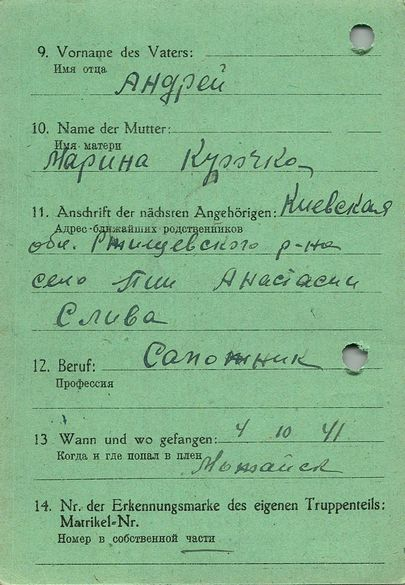 9. Vorname des Vaters:
Имя отца
Андрей
10. Name der Mutter:
Имя матери
Марина Курочко
11. Anschrift der nächsren Angehörigen: Киевская
Адрес ближайших родственников
обл. Ржищевского р-на
село Пии Анастасии
Слива
12. Beruf: Сапожник
Профессия
13 Wann und wo gefangen: 4 10 41
Когда и где попал в плен
Можайск
14. Nr. der Erkennungsmarke des eigenen Truppenteils:
Matrikel-Nr.
Номер в собственной части